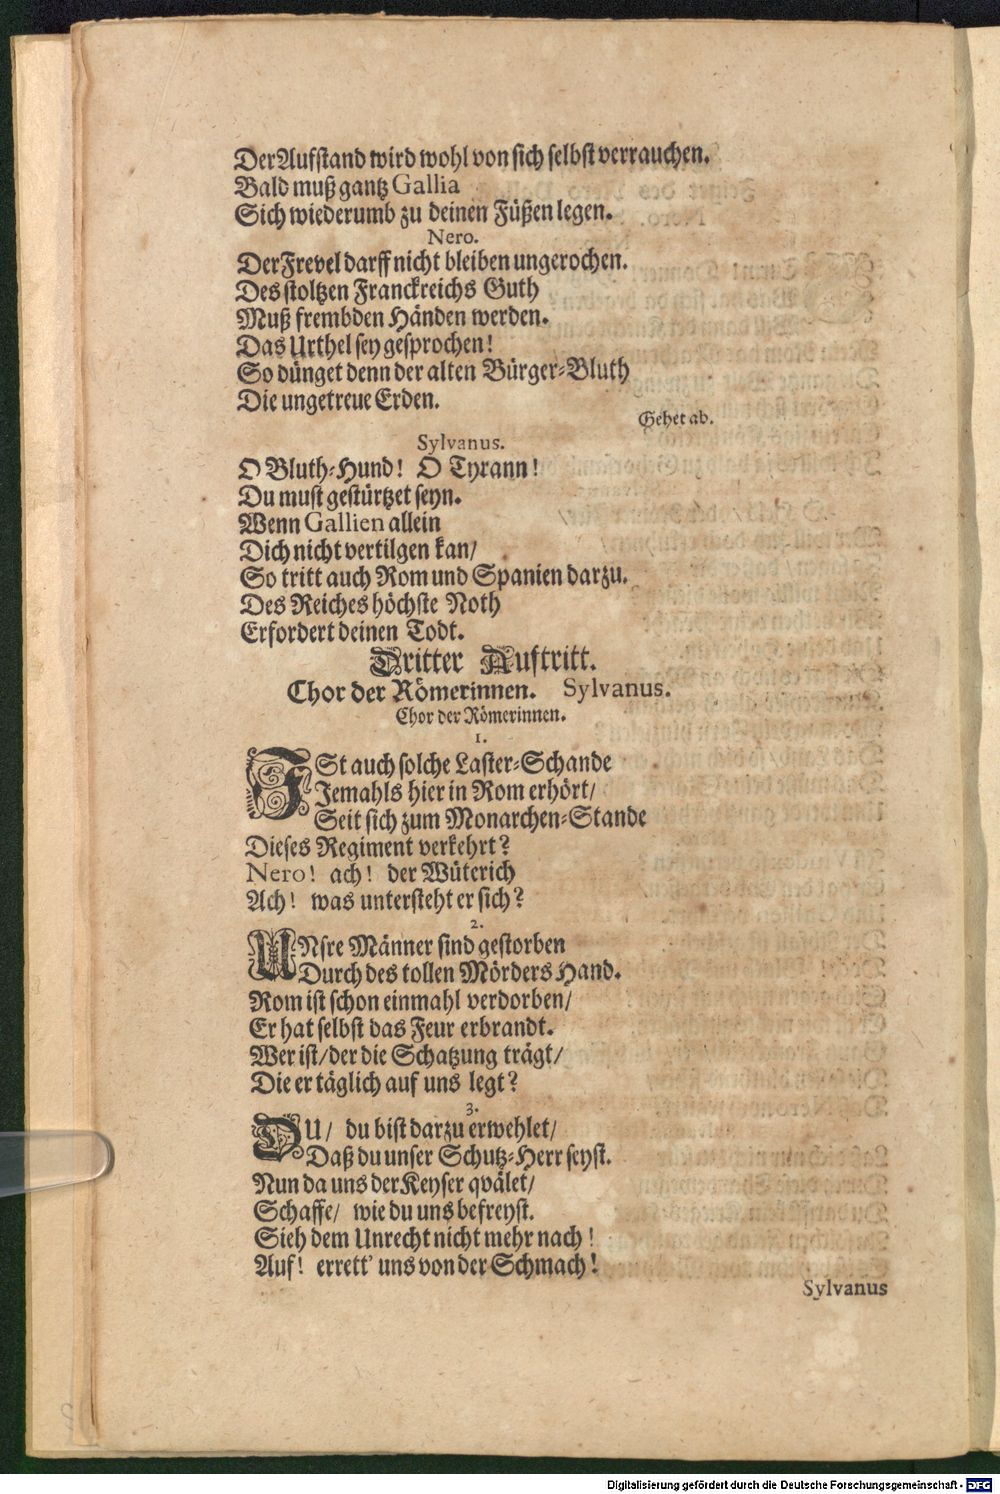 Der Aufstand wird wohl von sich selbst verrauchen.
Bald muß gantz Gallia
Sich wiederumb zu deinen Füßen legen.
Nero.
Der Frevel darff nicht bleiben ungerochen.
Des stoltzen Franckreichs Guth
Muß frembden Händen werden.
Das Urthel sey gesprochen!
So dünget denn der alten Bürger-Bluth
Die ungetreue Erden.
Gehet ab.
Sylvanus.
O Bluth-Hund! O Tyrann!
Du must gestürtzet seyn.
Wenn Gallien allein
Dich nicht vertilgen kan/
So tritt auch Rom und Spanien darzu.
Des Reiches höchste Noth
Erfordert deinen Todt.
Dritter Auftritt.
Chor der Römerinnen. Sylvanus.
Chor der Römerinnen.
1.
ISt auch solche Laster-Schande
Jemahls hier in Rom erhört/
Seit sich zum Monarchen-Stande
Dieses Regiment verkehrt?
Nero! ach! der Wüterich
Ach! was untersteht er sich?
2.
UNsre Männer sind gestorben
Durch des tollen Mörders Hand.
Rom ist schon einmahl verdorben/
Er hat selbst das Feur erbrandt.
Wer ist/ der die Schatzung trägt/
Die er täglich auf uns legt?
3.
DU/ du bist darzu erwehlet/
Daß du unser Schutz-Herr seyst.
Nun da uns der Keyser qvälet/
Schaffe/ wie du uns befreyst.
Sieh dem Unrecht nicht mehr nach!
Auf! errett' uns von der Schmach!
Sylvanus
Digitalisierung gefördert durch die Deutsche Forschungsgemeinschaft - DFG